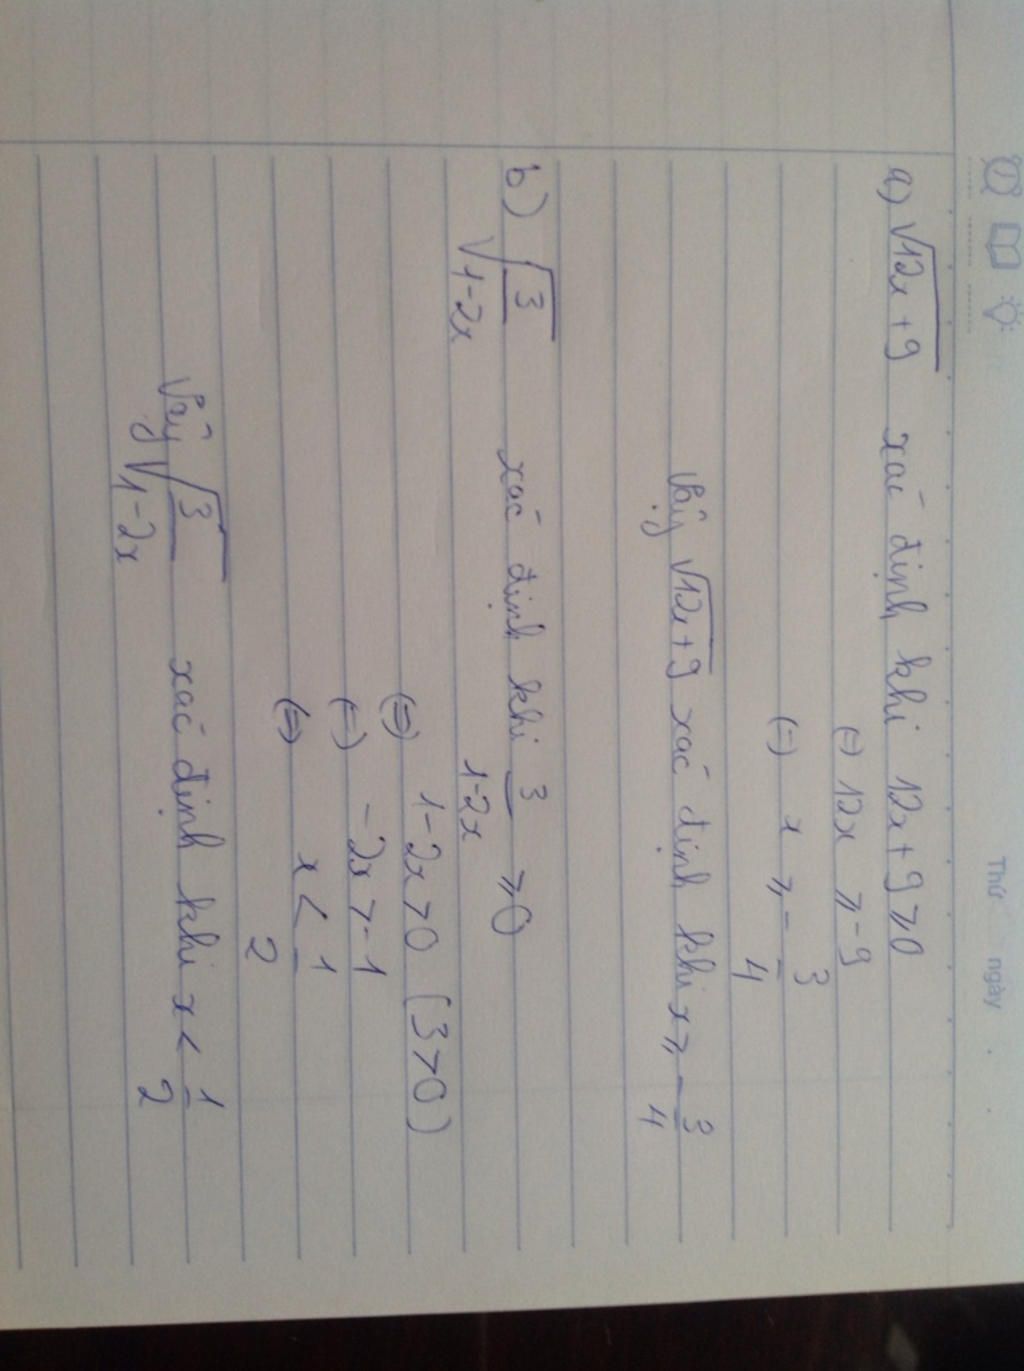 Thứ ngày
a) √12x+9 xác định khi 12x+9⩾0
(=) 12x ⩾ -9
(=) x ⩾ -3/4
Vậy √12x+9 xác định khi x ⩾ -3/4
b) √3/1-2x xác định khi 3/1-2x ⩾0
(=) 1-2x>0 (3>0)
(=) -2x>-1
(=) x<1/2
Vậy √3/1-2x xác định khi x<1/2